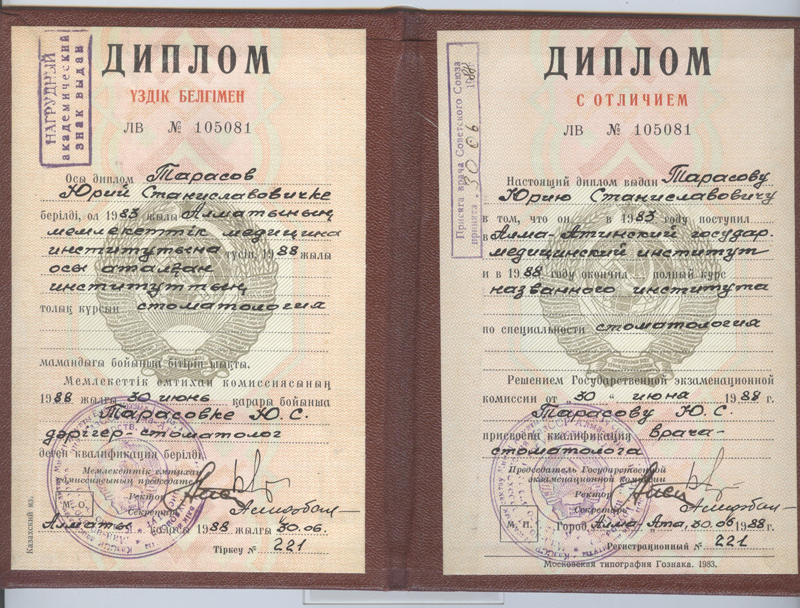 НАГРУДНЫЙ
академический
знак выдан
ДИПЛОМ
ҮЗДІК БЕЛГІМЕН
ЛВ № 105081
Осы диплом Тарасов
Юрий Станиславовичке
берілді, ол 1983 жылы Алматының
мемлекеттік медицина
институтына түсіп, 1988 жылы
осы аталған
институттың
толық курсын стоматология
мамандығы бойынша бітіріп шықты.
Мемлекеттік емтихан комиссиясының
1988 жылғы 30 июнь қарары бойынша
Тарасовке Ю.С.
дәрігер-стоматолог
деген квалификация берілді.
Мемлекеттік емтихан
комиссиясының председателі
Ректор
Секретарь
М. О.
Алматы қаласы 1988 жылғы 30.06.
Тіркеу № 221
Казахский яз.
Присяга врача Советского Союза
принята 30 06 1988г.
ДИПЛОМ
С ОТЛИЧИЕМ
ЛВ № 105081
Настоящий диплом выдан Тарасову
Юрию Станиславовичу
в том, что он в 1983 году поступил
в Алма-Атинский государ.
медицинский институт
и в 1988 году окончил полный курс
названного института
по специальности стоматология
Решением Государственной экзаменационной
комиссии от "30" июня 1988 г.
Тарасову Ю.С.
присвоена квалификация врача-
стоматолога
Председатель Государственной
экзаменационной комиссии
Ректор
Секретарь
М. П.
Город Алма-Ата, 30.06 1988 г.
Регистрационный № 221
Московская типография Гознака. 1983.